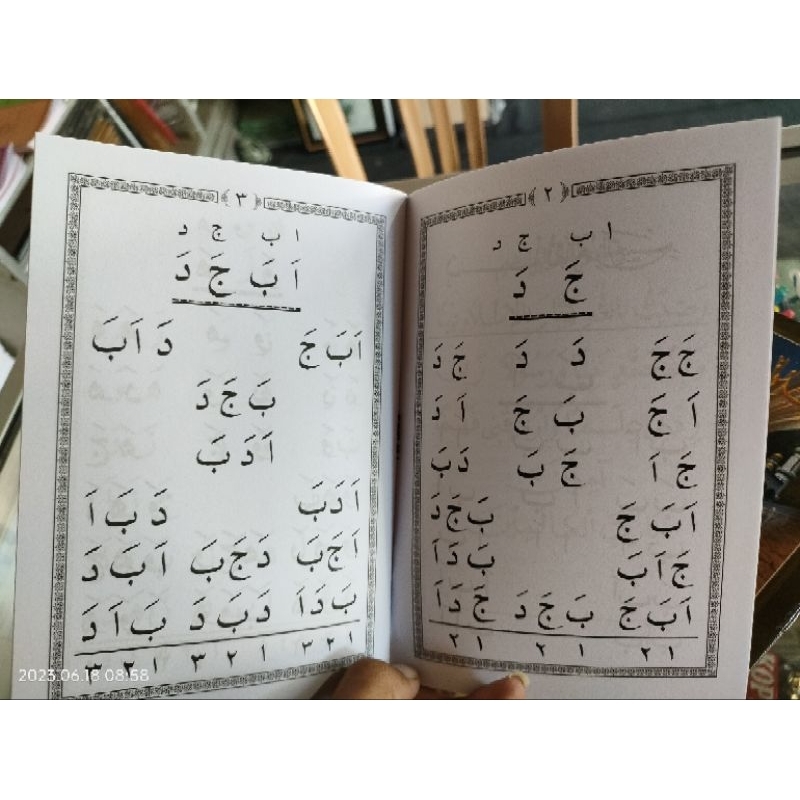 ٢
ا ب ج د
جَ دَ
جَ جَ دَ دَ جَ دَ
اَ جَ بَ جَ اَ دَ
جَ اَ جَ بَ دَ بَ
اَ بَ جَ بَ جَ دَ
جَ اَ بَ بَ دَ اَ
اَ بَ جَ بَ جَ دَ جَ دَ اَ
١ ٢ ١ ٢ ١ ٢
٣
ا ب ج د
اَ بَ جَ دَ
اَ بَ جَ دَ اَ بَ
بَ جَ دَ
اَ دَ بَ
اَ دَ بَ دَ بَ اَ
اَ جَ بَ دَ جَ بَ اَ بَ دَ
بَ دَ اَ دَ بَ دَ بَ اَ دَ
١ ٢ ٣ ١ ٢ ٣ ١ ٢ ٣
2023.06.18 08:58